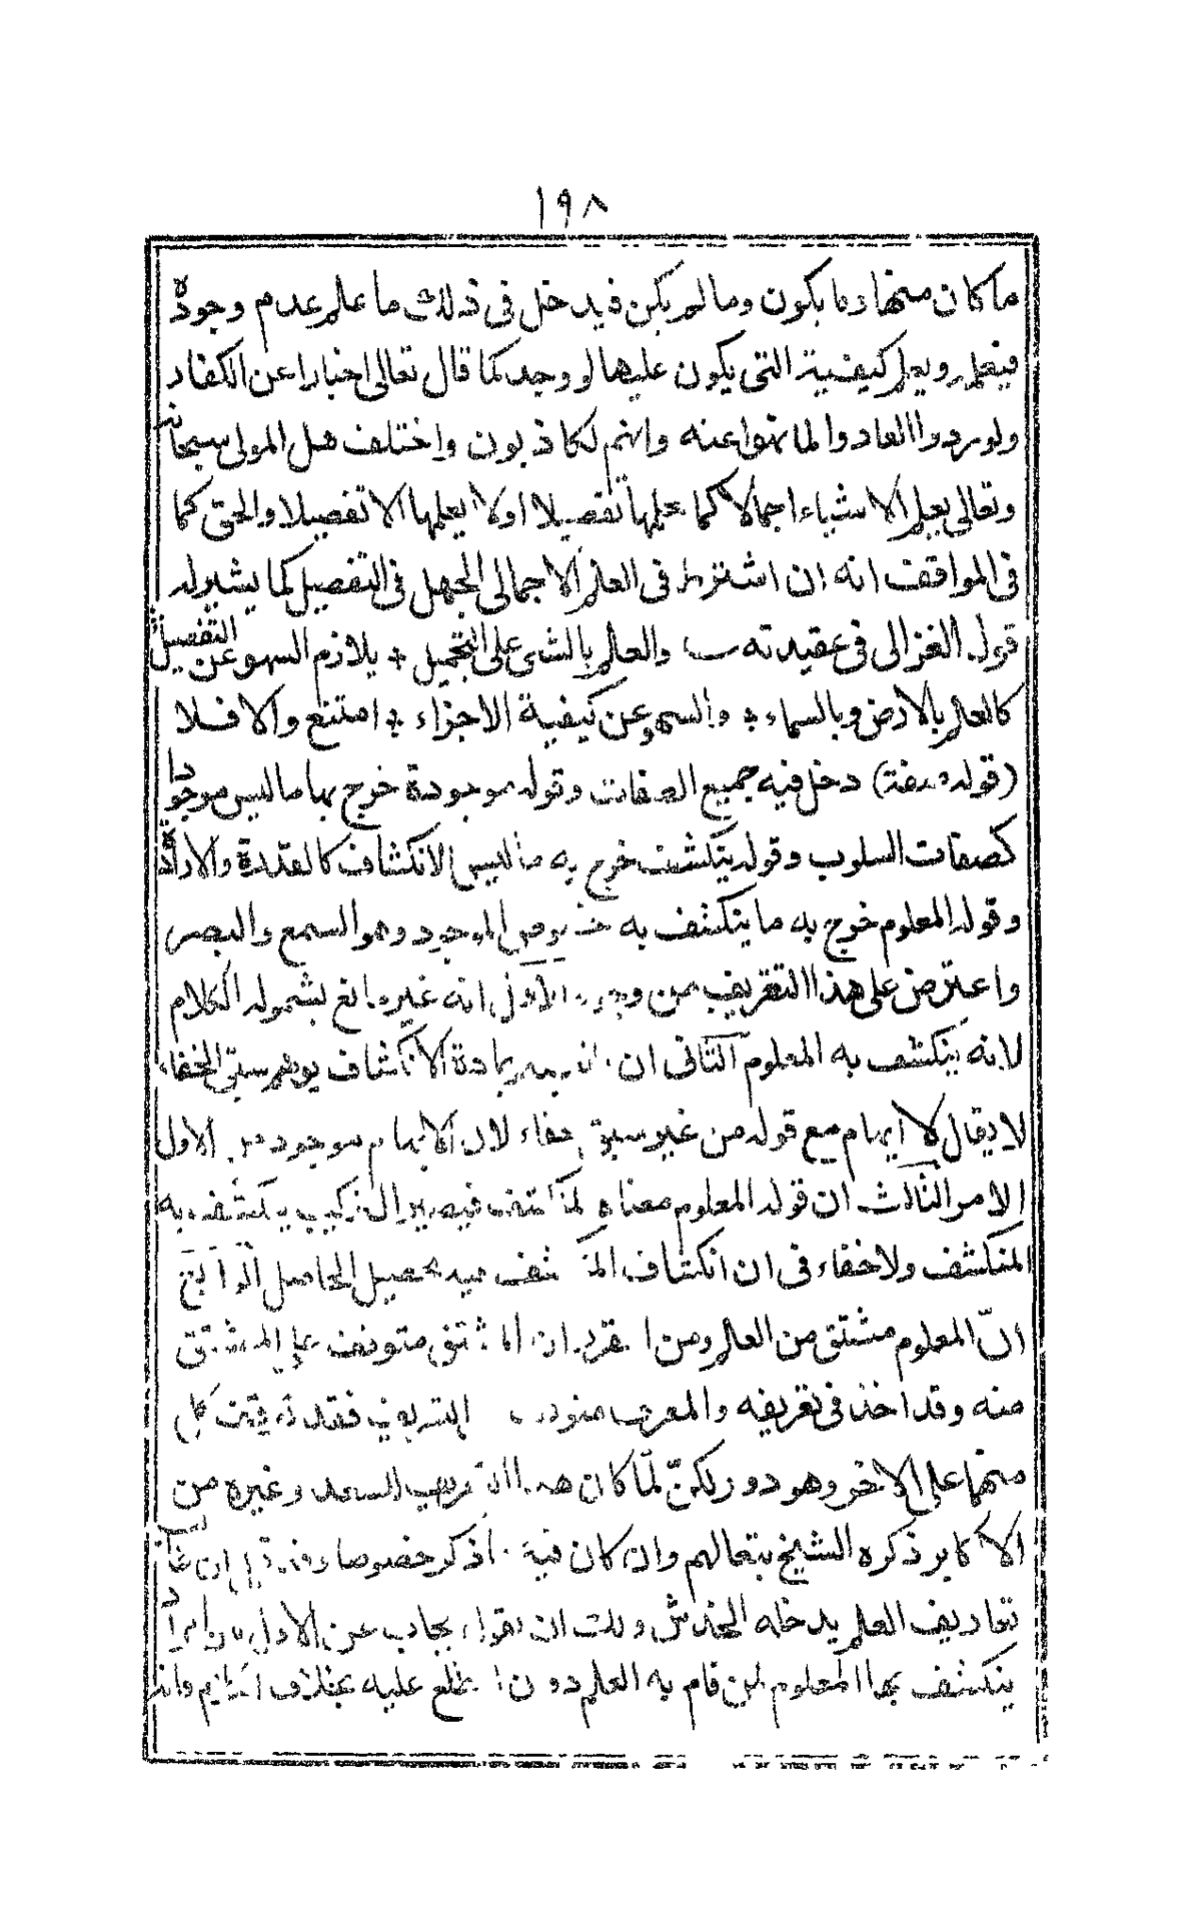 ١٩٨
ما كان منها وما يكون وما لم يكن فيدخل فى ذلك ما علم عدم وجوده
فيعلمه ويعلم كيفية التى يكون عليها لو وجد كما قال تعالى اخبارا عن الكفار
ولو ردوا العادوا لما نهوا عنه وانهم لكاذبون واختلف هل المولى سبحانه
وتعالى يعلم الاشياء اجمالا كما علمها تفصيلا اولا يعلمها الا تفصيلا والحق كما
فى المواقف انه ان اشترط فى العلم الاجمالى الجهل فى التفصيل كما يشير له
قول الغزالى فى عقيدته والعلم بالشى على التجميل * يلازم السهو عن التفصيل
كالعلم بالارض وبالسماء * والسهو عن كيفية الاجزاء * امتنع والا فلا
(قوله صفة) دخل فيه جميع الصفات وقوله موجودة خرج بها ما ليس موجودا
كصفات السلوب وقوله ينكشف خرج به ما ليس الانكشاف كالقدرة والارادة
وقوله المعلوم خرج به ما ينكشف به خصوص الموجود وهو السمع والبصر
واعترض على هذا التعريف من وجوه الاول انه غير مانع بشموله الكلام
لانه ينكشف به المعلوم الثانى ان بمادة الانكشاف يوهم سبق الخفاء
لا يقال لا ايهام مع قوله من غير سبق خفاء لان الايهام موجود من الاول
الامر الثالث ان قوله المعلوم معناه المنكشف فيصير التركيب ينكشف به
المنكشف ولا خفاء فى ان انكشاف المنكشف فيه تحصيل الحاصل الرابع
انّ المعلوم مشتق من العلم ومن المقرر ان المشتق متوقف على المشتق
منه وقد اخذ فى تعريفه والمعرف متوقف التعريف فقد توقف كل
منهما على الاخر وهو دور لكنّ لمّا كان هذا التعريف للسعد وغيره من
الاكابر ذكره الشيخ تبعا لهم وان كان فيه ما ذكر خصوصا وقد ان غالب
تعاريف العلم يدخله الخدش ولك ان تقول يجاب عن الاول بان المراد
ينكشف بها المعلوم لمن قام به العلم دون يطلع عليه بخلاف الكلام فانه